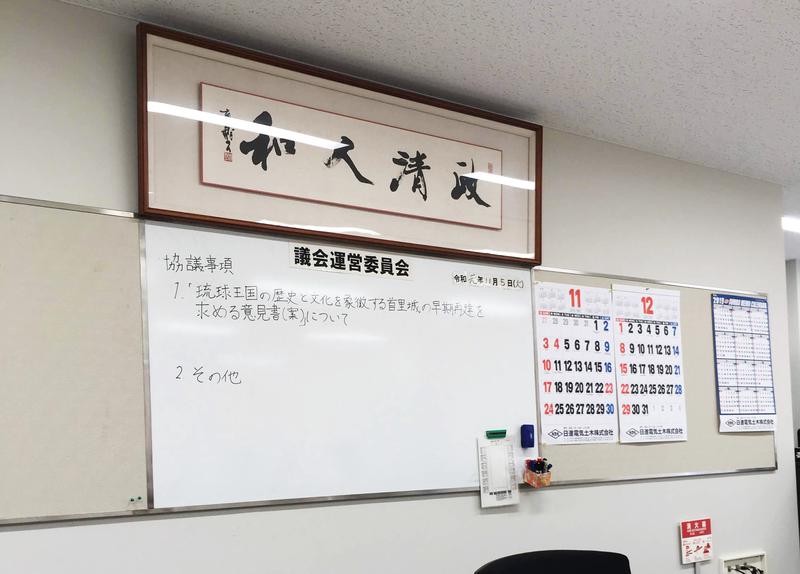 政清人和
議会運営委員会
令和元年11月5日(火)
協議事項
1.「琉球王国の歴史と文化を象徴する首里城の早期再建を
求める意見書(案)」について
2. その他
11
1 2
3 4 5 6 7 8 9
10 11 12 13 14 15 16
17 18 19 20 21 22 23
24 25 26 27 28 29 30
日進電気土木株式会社
12
1 2 3 4 5 6 7
8 9 10 11 12 13 14
15 16 17 18 19 20 21
22 23 24 25 26 27 28
29 30 31
日進電気土木株式会社
2019
日進電気土木株式会社
消火器